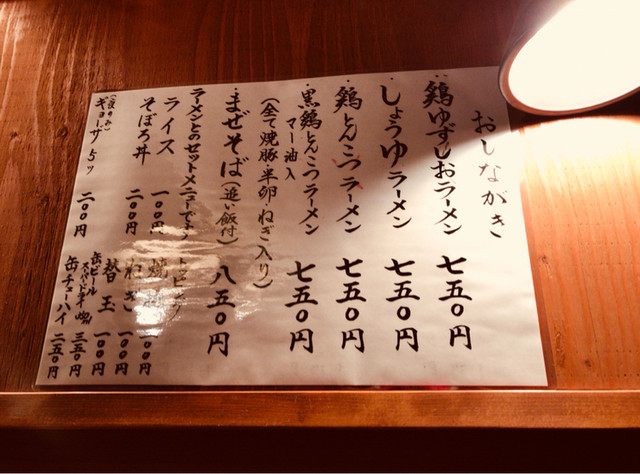 おしながき
鶏ゆずしおラーメン 七五〇円
しょうゆラーメン 七五〇円
鶏とんこつラーメン 七五〇円
黒鶏とんこつラーメン 七五〇円
マー油入
(全て焼豚・半卵・ねぎ入り)
まぜそば(追い飯付) 八五〇円
ラーメンとのセットメニューです
ライス 一〇〇円
そぼろ丼 二〇〇円
(夜のみ)
ギョーザ 5ヶ 二〇〇円
トッピング
一〇〇円
ねぎ 一〇〇円
替玉 一〇〇円
缶ビール
スーパードライ 三五〇円
缶チューハイ 二五〇円